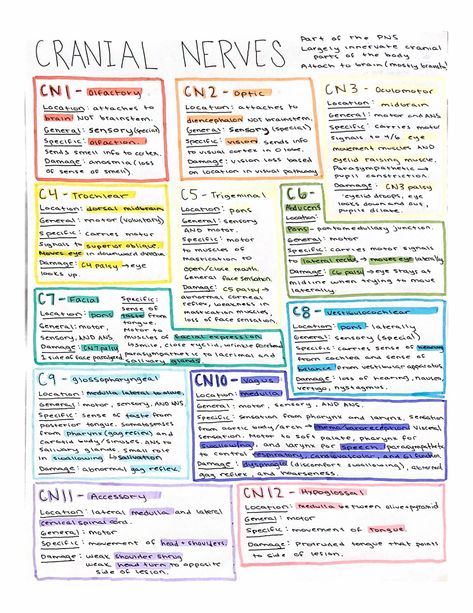 CRANIAL NERVES
Part of the PNS
Largely innervate cranial
parts of the body
Attach to brain (mostly brainstem)
CN1 - Olfactory
Location: attaches to
brain NOT brainstem.
General: sensory (special)
Specific: olfaction.
Sends smell info to cortex.
Damage: anosmia (loss
of sense of smell)
CN2 - Optic
Location: attaches to
diencephalon NOT brainstem.
General: sensory (special)
Specific: vision. Sends info
to visual cortex in O lobe.
Damage: vision loss based
on location in visual pathway
CN3 - Oculomotor
Location: midbrain
General: motor and ANS
Specific: carries motor
signals to 4/6 eye
movement muscles AND
eyelid raising muscle.
Parasympathetic →
pupil constriction.
Damage: CN3 palsy
eyelid droops, eye
looks down and out,
pupils dilate.
C4 - Trochlear
Location: dorsal midbrain
General: motor (voluntary)
Specific: carries motor
signals to superior oblique.
Moves eye in downward
Damage: C4 palsy → eye
looks up.
C5 - Trigeminal
Location: pons
General: sensory
AND motor.
Specific: motor
to muscles of
mastication to
open/close mouth.
General face sensation
Damage: C5 palsy →
abnormal corneal
reflex, weakness in
mastication muscles,
loss of face sensation.
C6 - Abducens
Location:
Pons - pontomedullary junction.
General: motor
Specific: carries motor signals
to lateral rectus → moves eye laterally
Damage: C6 palsy → eye stays at
midline when trying to move
laterally.
C7 - Facial
Location: pons
General: motor,
sensory, AND ANS.
Damage: CN7 palsy
1 side of face paralyzed
Specific:
sense of
taste from
tongue.
Motor to
muscles of facial expression
(smile, close eyelid, wrinkle forehead)
parasympathetic to lacrimal and
salivary glands
C8 - Vestibulocochlear
Location: pons - laterally
General: sensory (special)
Specific: carries sense of hearing
from cochlea and sense of
balance from vestibular apparatus.
Damage: loss of hearing, nausea,
vertigo, nystagmus.
C9 - glossopharyngeal
Location: medulla, lateral to olive
General: motor, sensory, AND ANS.
Specific: sense of taste from
posterior tongue. Somatosenses
from pharynx (gag reflex) and
carotid body/sinuses. ANS to
salivary glands. Small role
in swallowing
Damage: abnormal gag reflex.
CN10 - Vagus
Location: medulla
General: motor, sensory, AND ANS.
Specific: sensation from pharynx and larynx, sensation
from aortic body/arch → chemo/baroreception. Visceral
sensation. Motor to soft palate, pharynx for
swallowing, and larynx for speech. parasympathetic
to control respiratory, cardiovascular, and GI function
Damage: dysphagia (discomfort swallowing), abnormal
gag reflex, and hoarseness.
CN11 - Accessory
Location: lateral medulla and lateral
cervical spinal cord.
General: motor
Specific: movement of head + shoulders.
Damage: weak shoulder shrug
weak head turn to opposite
side of lesion.
CN12 - Hypoglossal
Location: medulla between olive + pyramid
General: motor
Specific: movement of tongue.
Damage: Protruded tongue that points
to side of lesion.